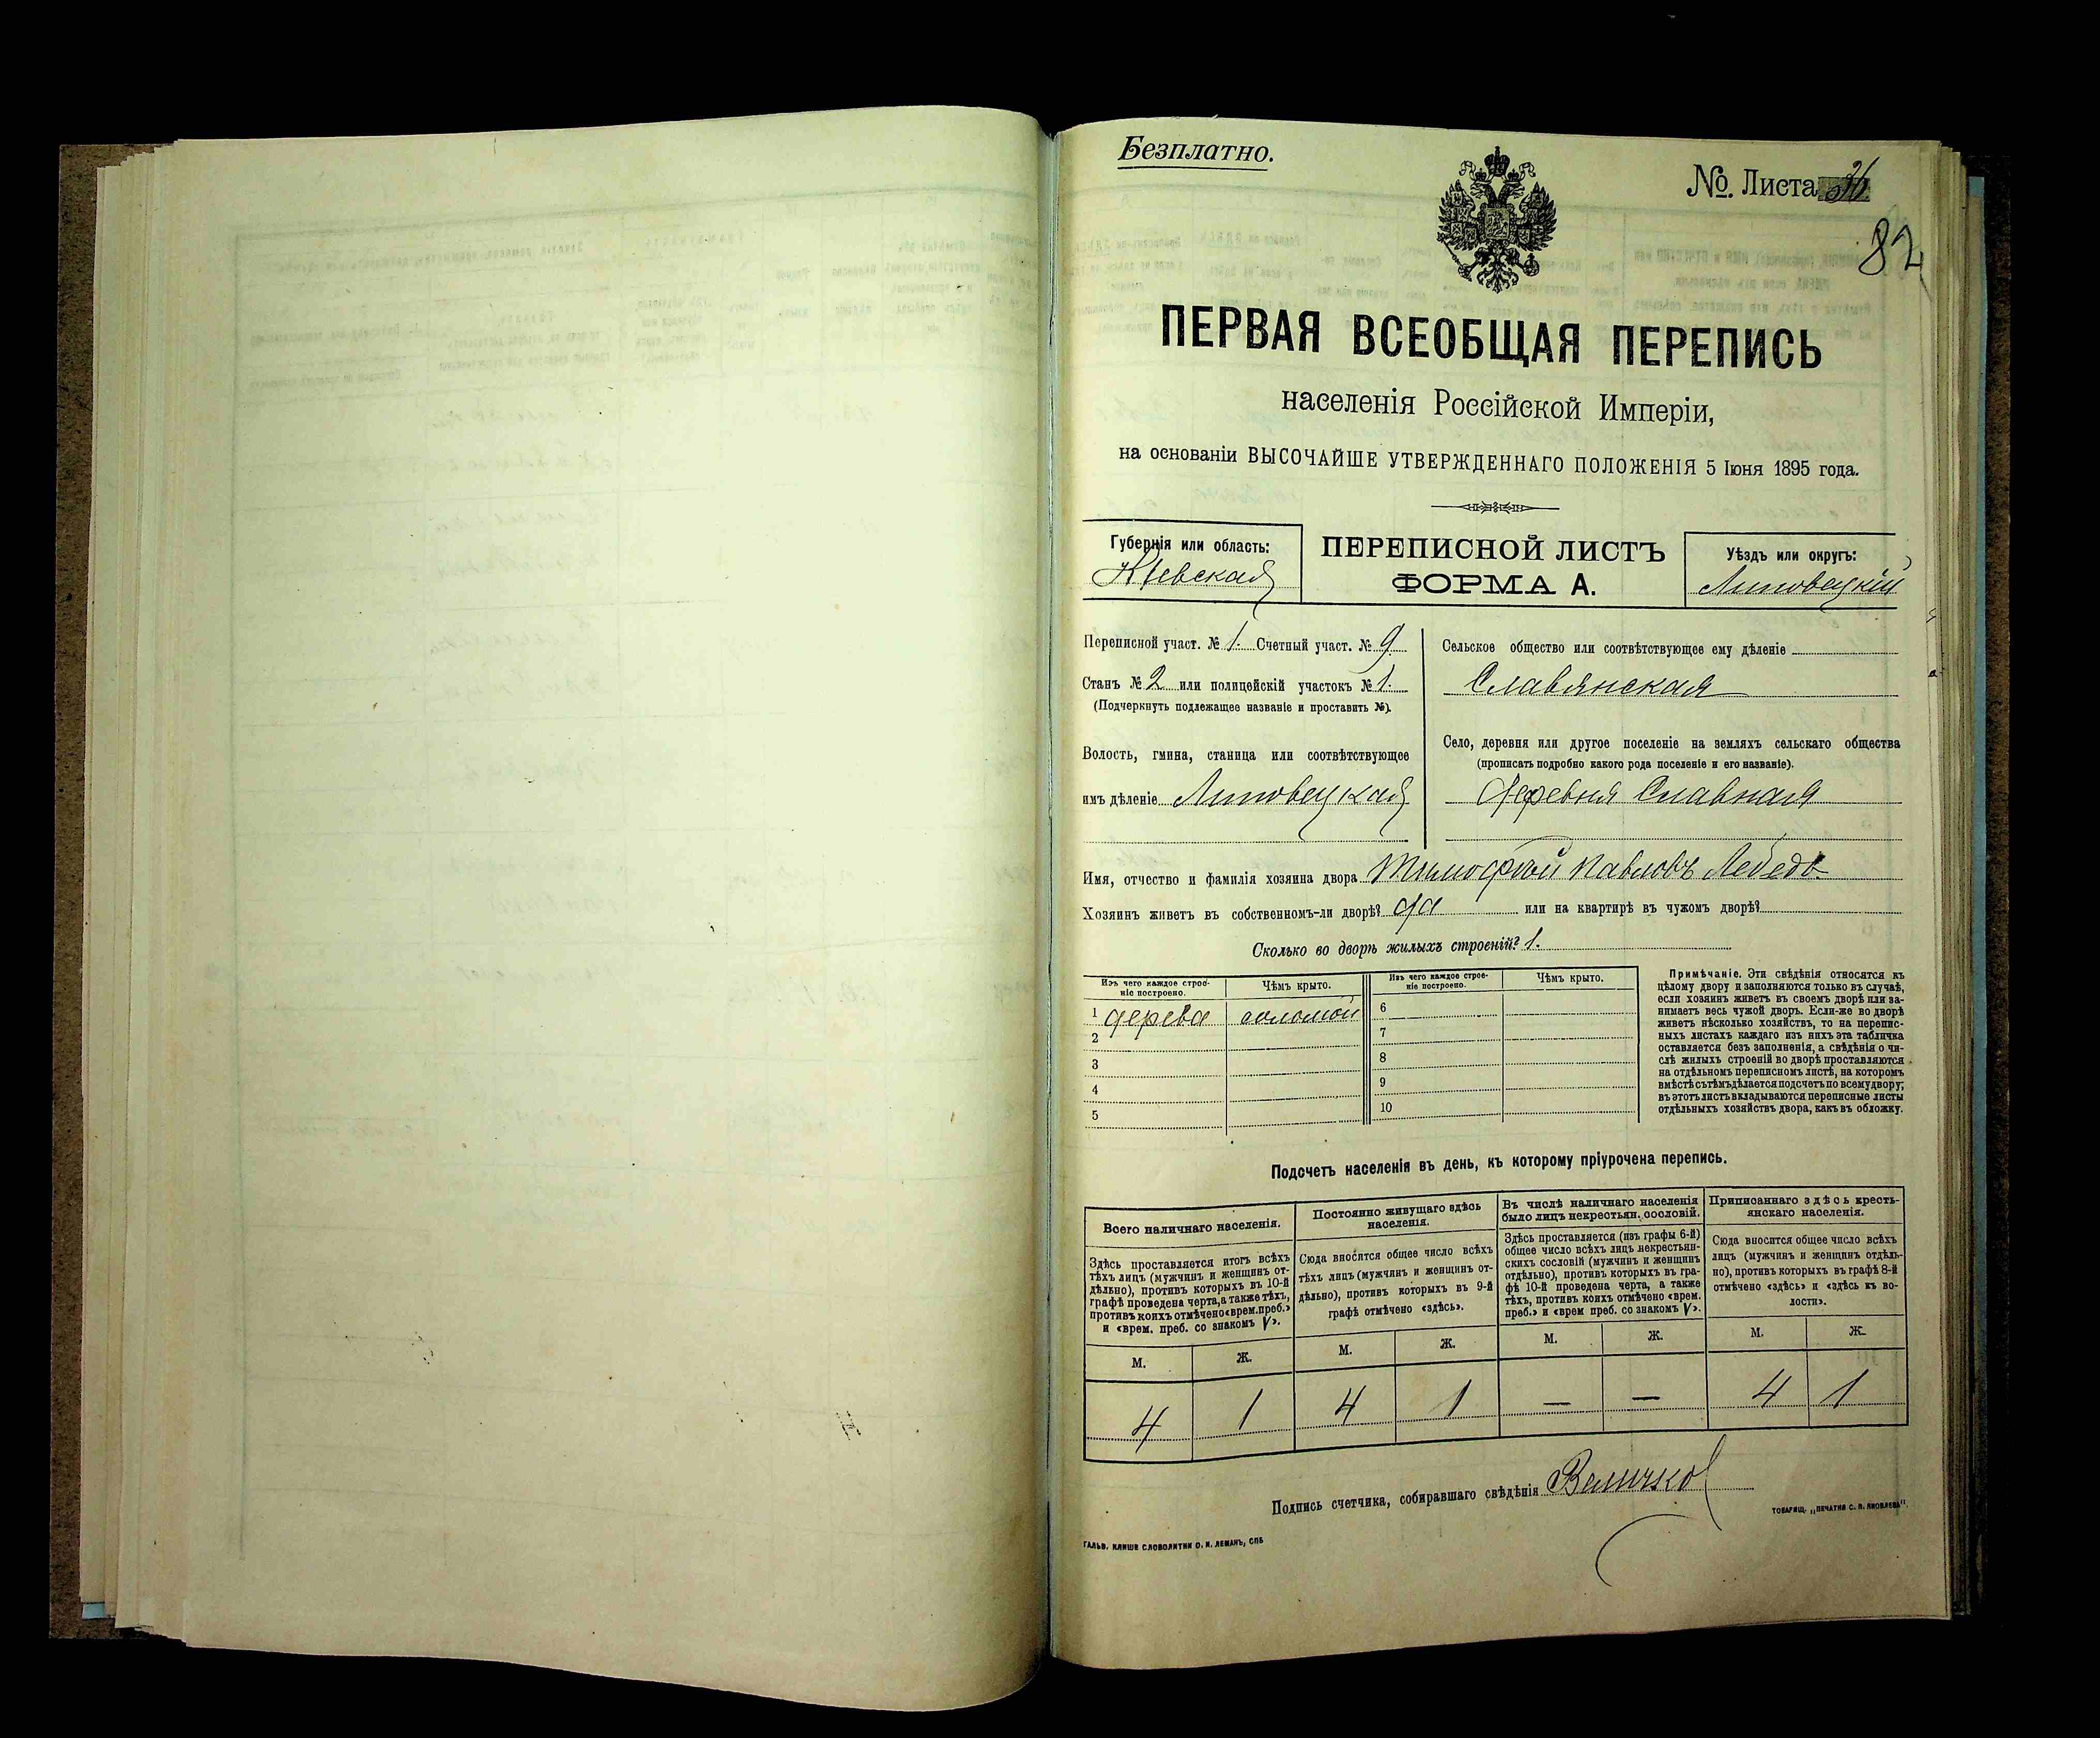 Безплатно.
№. Листа
82
ПЕРВАЯ ВСЕОБЩАЯ ПЕРЕПИСЬ
населенія Россійской Имперіи,
на основаніи ВЫСОЧАЙШЕ УТВЕРЖДЕННАГО ПОЛОЖЕНІЯ 5 Іюня 1895 года.
Губернія или область:
Кіевская
ПЕРЕПИСНОЙ ЛИСТЪ
ФОРМА А.
Уѣздъ или округъ:
Липовецкій
Переписной участ. № 1. Счетный участ. № 9
Станъ № 2 или полицейскій участокъ № 1.
(Подчеркнуть подлежащее названіе и проставить №).
Волость, гмина, станица или соотвѣтствующее
имъ дѣленіе Липовецкая
Сельское общество или соотвѣтствующее ему дѣленіе
Славянская
Село, деревня или другое поселеніе на земляхъ сельскаго общества
(прописать подробно какого рода поселеніе и его названіе).
Деревня Славная
Имя, отчество и фамилія хозяина двора Тимофѣй Павловъ Лебедь
Хозяинъ живетъ въ собственномъ-ли дворѣ? да или на квартирѣ въ чужомъ дворѣ?
Сколько во дворѣ жилыхъ строеній? 1.
Изъ чего каждое строеніе построено.
Чѣмъ крыто.
Изъ чего каждое строеніе построено.
Чѣмъ крыто.
1 дерева соломой 6
2 7
3 8
4 9
5 10
Примѣчаніе. Эти свѣдѣнія относятся къ
цѣлому двору и заполняются только въ случаѣ,
если хозяинъ живетъ въ своемъ дворѣ или за-
нимаетъ весь чужой дворъ. Если-же во дворѣ
живетъ нѣсколько хозяйствъ, то на перепис-
ныхъ листахъ каждаго изъ нихъ эта табличка
оставляется безъ заполненія, а свѣдѣнія о чи-
слѣ жилыхъ строеній во дворѣ проставляются
на отдѣльномъ переписномъ листѣ, на которомъ
вмѣстѣ съ тѣмъ дѣлается подсчетъ по всему двору;
въ этотъ листъ вкладываются переписные листы
отдѣльныхъ хозяйствъ двора, какъ въ обложку.
Подсчетъ населенія въ день, къ которому пріурочена перепись.
Всего наличнаго населенія.
Здѣсь проставляется итогъ всѣхъ
тѣхъ лицъ (мужчинъ и женщинъ от-
дѣльно), противъ которыхъ въ 10-й
графѣ проведена черта, а также тѣхъ,
противъ коихъ отмѣчено «врем. преб.»
и «врем. преб. со знакомъ V».
Постоянно живущаго здѣсь
населенія.
Сюда вносятся общее число всѣхъ
тѣхъ лицъ (мужчинъ и женщинъ от-
дѣльно), противъ которыхъ въ 9-й
графѣ отмѣчено «здѣсь».
Въ числѣ наличнаго населенія
было лицъ некрестьян. сословій.
Здѣсь проставляется (изъ графы 6-й)
общее число всѣхъ лицъ некрестьян-
скихъ сословій (мужчинъ и женщинъ
отдѣльно), противъ которыхъ въ гра-
фѣ 10-й проведена черта, а также
тѣхъ, противъ коихъ отмѣчено «врем.
преб.» и «врем преб. со знакомъ V».
Приписаннаго здѣсь кресть-
янскаго населенія.
Сюда вносится общее число всѣхъ
лицъ (мужчинъ и женщинъ отдѣль-
но), противъ которыхъ въ графѣ 8-й
отмѣчено «здѣсь» и «здѣсь къ во-
лости».
М. Ж. М. Ж. М. Ж. М. Ж.
4 1 4 1 — — 4 1
Подпись счетчика, собиравшаго свѣдѣнія Величко
ГАЛЬВ. КЛИШЕ СЛОВОЛИТНИ О. И. ЛЕМАНЪ, СПБ
ТОВАРИЩ. „ПЕЧАТНЯ С. П. ЯКОВЛЕВА“.